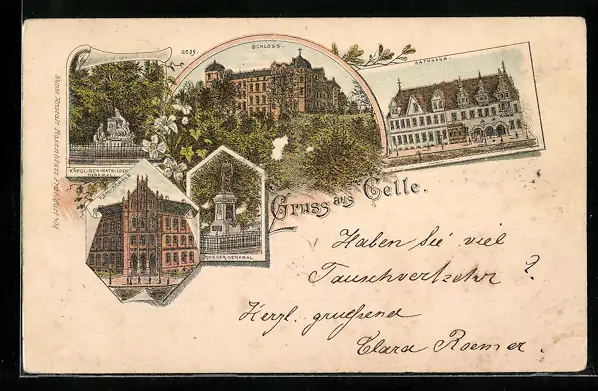 2639.
SCHLOSS.
RATHHAUS.
KAROLINEN-MATHILDEN
DENKMAL
KRIEGER-DENKMAL
Gruss aus Celle.
Haben Sie viel
Tauschverkehr?
Herzl. gruessend
Clara Roemer.